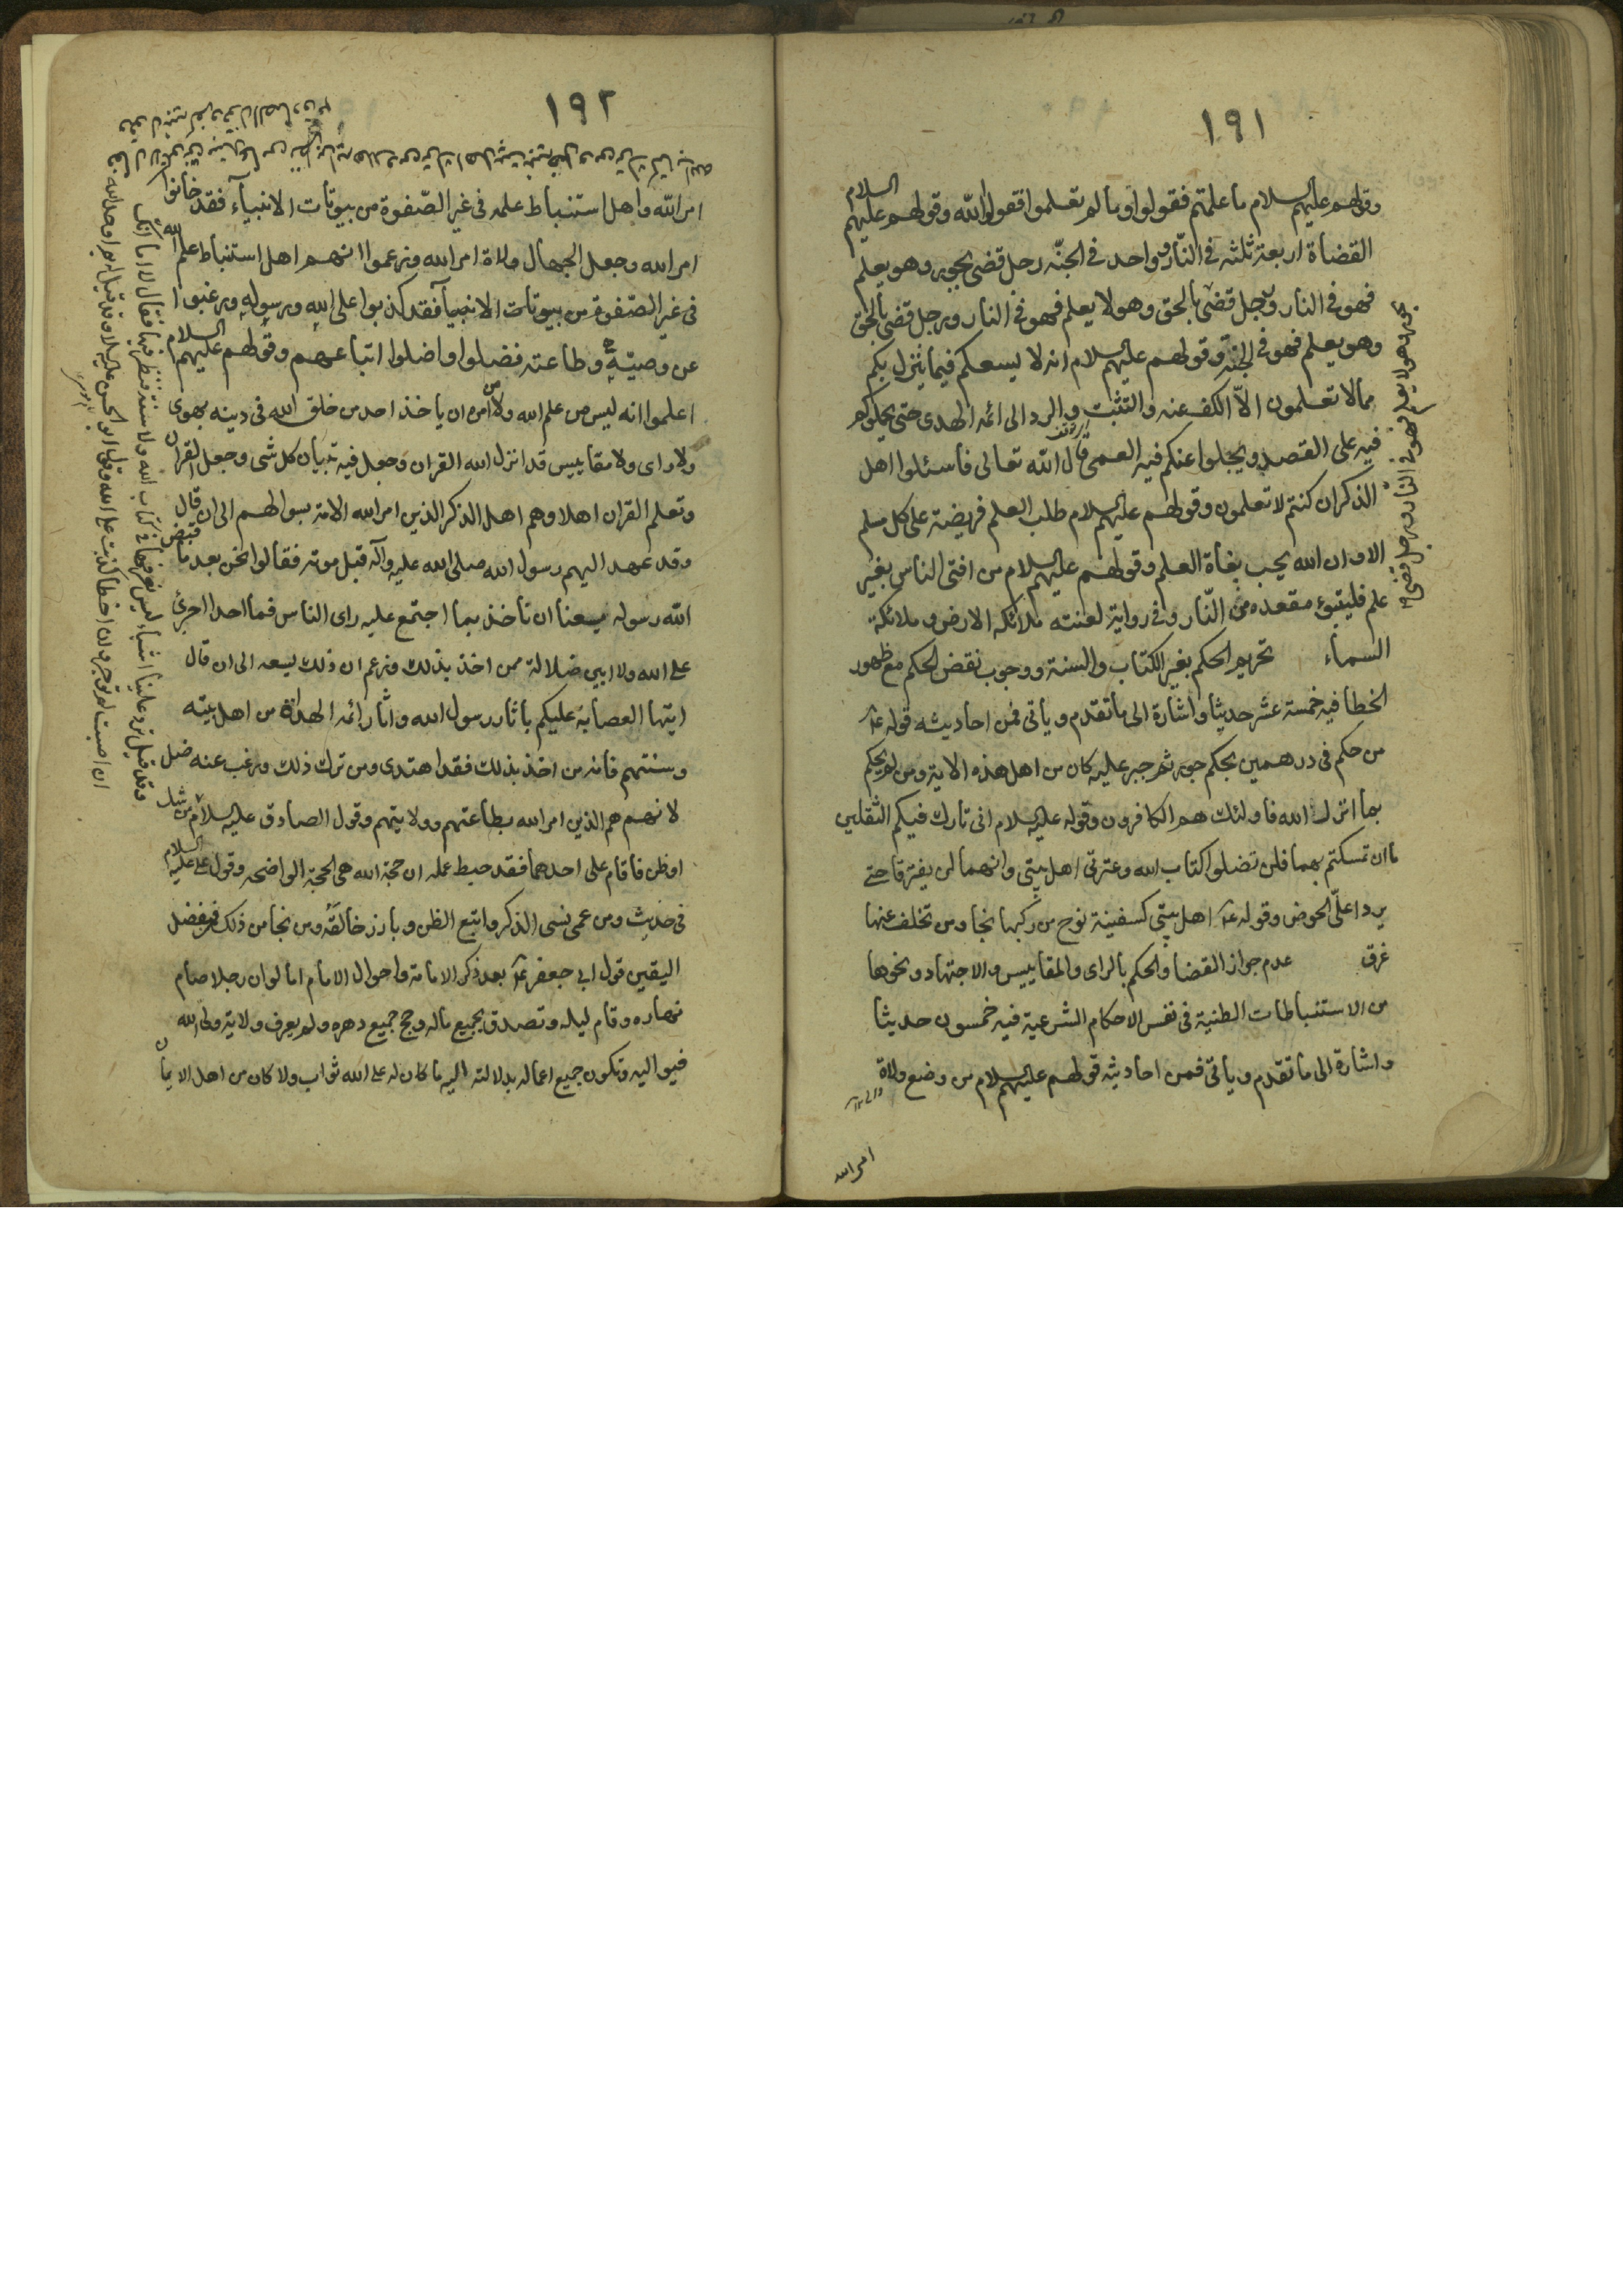 ١٩١
وقولهم عليهم السلام ما علمتم فقولوا وما لم تعلموا فقولوا الله وقولهم عليهم السلام
القضاة اربعة ثلثه فى النار وواحد فى الجنّه رجل قضى بجور وهو يعلم
فهو فى النار ورجل قضى بالحق وهو لا يعلم فهو فى النار ورجل قضى بالحق
وهو يعلم فهو فى الجنة وقولهم عليهم السلام انه لا يسعكم فيما ينزل بكم
مما لا تعلمون الاّ الكف عنه والتثبت والرد الى ائمه الهدى حتى يحملوكم
فيه على القصد ويجلوا عنكم فيه العمى قال الله تعالى فاسئلوا اهل
الذكر ان كنتم لا تعلمون وقولهم عليهم السلام طلب العلم فريضة على كل مسلم
الا وان الله يحب بغاة العلم وقولهم عليهم السلام من افتى الناس بغير
علم فليتبوء مقعده من النّار وفى رواية لعنته ملائكه الارض وملائكة
السماء تحريم الحكم بغير الكتاب والسنة ووجوب نقض الحكم مع ظهور
الخطا فيه خمسة عشر حديثا واشارة الى ما تقدم وياتى فمن احاديثه قوله ع
من حكم فى درهمين بحكم جور ثم جبر عليه كان من اهل هذه الاية ومن لم يحكم
بما انزل الله فاولئك هم الكافرون وقوله عليه السلام انى تارك فيكم الثقلين
ما ان تمسكتم بهما فلن تضلوا كتاب الله وعترتى اهل بيتى وانهما لن يفترقا حتى
يردا علىّ الحوض وقوله ع اهل بيتى كسفينة نوح من ركبها نجا ومن تخلف عنها
غرق عدم جواز القضا والحكم بالراى والمقاييس والاجتهاد ونحوها
من الاستنباطات الظنية فى نفس الاحكام الشرعية فيه خمسون حديثا
واشارة الى ما تقدم وياتى فمن احاديثه قولهم عليهم السلام من وضع ولاة
امر الله
ورجل قضى بجور وهو لا يعلم فهو فى النار
١٩٢
امر الله واهل استنباط علمه فى غير الصّفوة من بيوتات الانبياء فقد خالفوا
امر الله وجعل الجهال ولاة امر الله وزعموا انهم اهل استنباط علم الله
فى غير الصّفوة من بيوتات الانبياء فقد كذبوا على الله ورسوله ورغبوا
عن وصيّه وطاعته فضلوا واضلوا اتباعهم وقولهم عليهم السلام
اعلموا انه ليس من علم الله ولا من امره ان ياخذ احد من خلق الله فى دينه بهوى
ولا راى ولا مقاييس قد انزل الله القران وجعل فيه تبيان كل شى وجعل القران
وتعلم القران اهلا وهم اهل الذكر الذين امر الله الامة بسوالهم الى ان قال
وقد عهد اليهم رسول الله صلى الله عليه وآله قبل موته فقالوا نحن بعد ما قبض
الله رسوله يسعنا ان ناخذ بما اجتمع عليه راى الناس فما احد اجرئ
على الله ولا ابين ضلالة ممن اخذ بذلك وزعم ان ذلك يسعه الى ان قال
ايتها العصابة عليكم باثار رسول الله واثار ائمه الهداة من اهل بيته
وسنتهم فانه من اخذ بذلك فقد اهتدى ومن ترك ذلك ورغب عنه ضل
لانهم هم الذين امر الله بطاعتهم وولايتهم وقول الصادق عليه السلام من شك
او ظن فاقام على احدهما فقد حبط عمله ان حجة الله هى الحجة الواضحه وقول على عليه السلام
فى حديث ومن عمى نسى الذكر واتبع الظن وبارز خالقه ومن نجا من ذلك فمن فضل
اليقين قول ابى جعفر ع بعد ذكر الامامة واحوال الامام اما لو ان رجلا صام
نهاره وقام ليله وتصدق بجميع ماله وحج جميع دهره ولم يعرف ولاية ولى الله
فيواليه وتكون جميع اعماله بدلالته اليه ما كان له على الله ثواب ولا كان من اهل الايمان